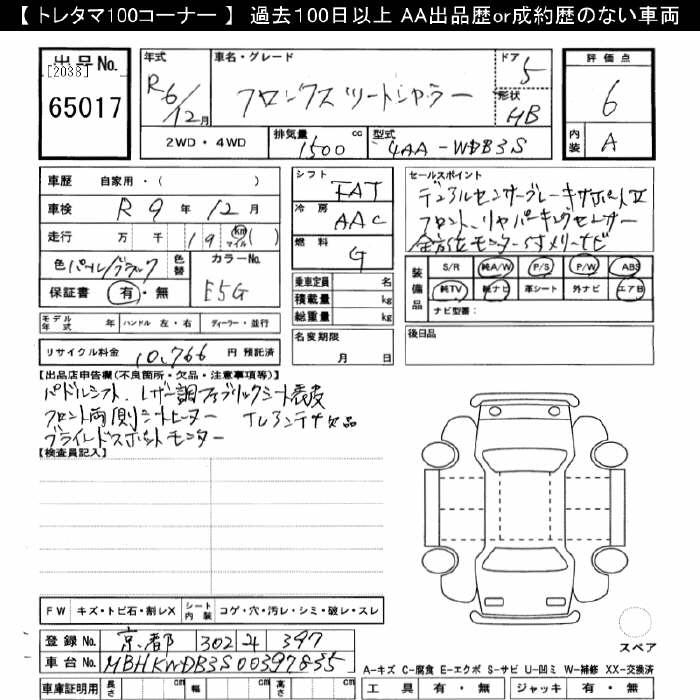 【 トレタマ100コーナー 】 過去100日以上 AA出品歴or成約歴のない車両
出品No.
[2038]
65017
年式
R6/12月
車名・グレード
フロンクス ツートンカラー
ドア
5
形状
HB
評価点
6
内装
A
2WD・4WD
排気量 1500 cc
型式 4AA-WDB3S
車歴 自家用・( )
車検 R 9 年 12 月
走行 万 千 19 km マイル ( )
色 パール/ブラック
色替
カラーNo.
E5G
保証書 有・無
シフト FAT
冷房 AAC
燃料 G
乗車定員 名
積載量 kg
総重量 kg
セールスポイント
デュアルセンサーブレーキサポートⅡ
フロント、リヤパーキングセンサー
全方位モニター付メモリーナビ
装備品
S/R 純A/W P/S P/W ABS
純TV 純ナビ 革シート 外ナビ エアB
ナビ型番:
モデル年式 年 ハンドル 左・右 ディーラー・並行
名変期限
月 日
後日品
リサイクル料金 10,766 円 預託済
【出品店申告欄(不良箇所・欠品・注意事項等)】
パドルシフト、レザー調ファブリックシート表皮
フロント両側シートヒーター TVアンテナ欠品
ブラインドスポットモニター
【検査員記入】
FW キズ・トビ石・割レX
シート内装 コゲ・穴・汚レ・シミ・破レ・スレ
登録No. 京都 302 ゐ 397
車台No. MBHKWDB3S00397855
スペア
A-キズ C-腐食 E-エクボ S-サビ U-凹ミ W-補修 XX-交換済
車庫証明用 長さ cm 幅 cm 高さ cm
工具 有・無 ジャッキ 有・無